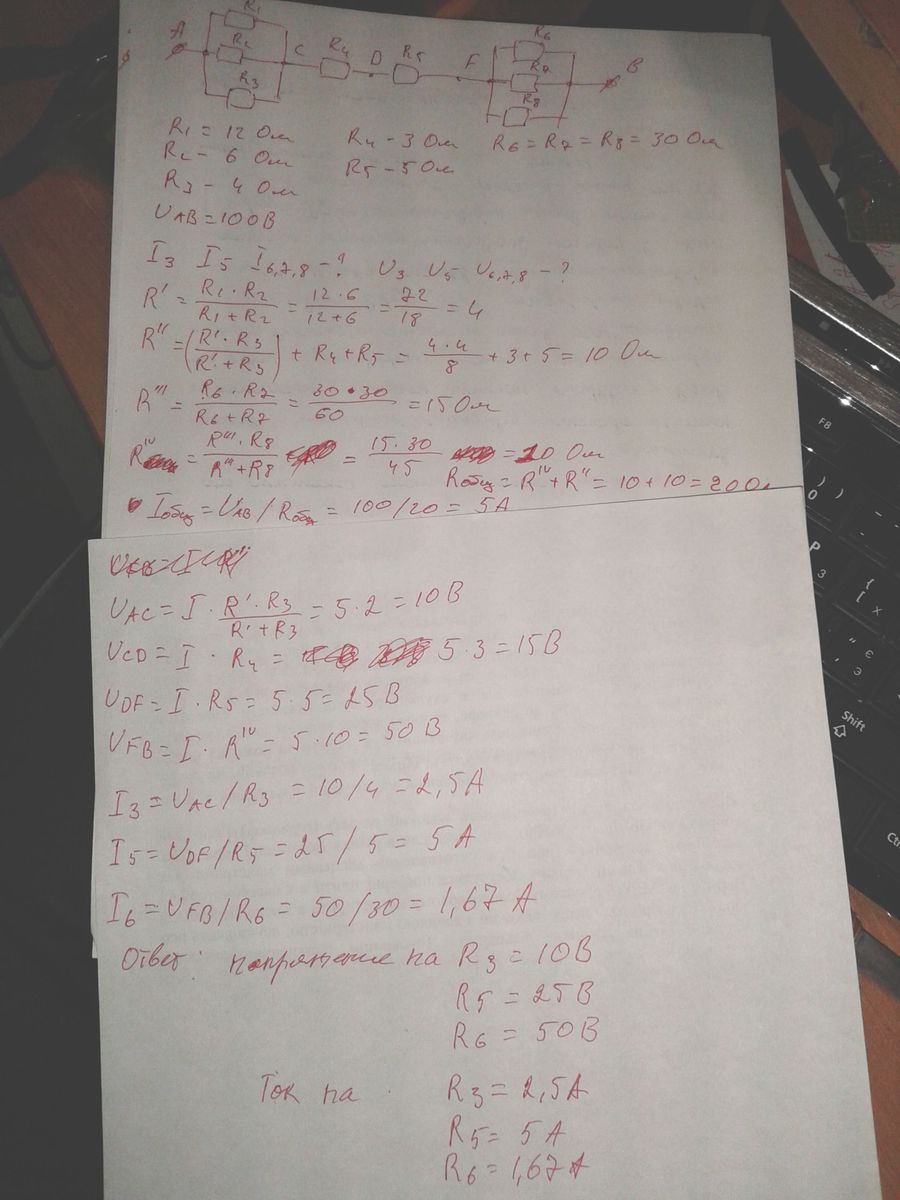 R1
A R2 C R4 D R5 F R6
R7 B
R3 R8
R1 = 12 Ом R4 - 3 Ом R6 = R7 = R8 = 30 Ом
R2 - 6 Ом R5 - 5 Ом
R3 - 4 Ом
UAB = 100В
I3 I5 I6,7,8 - ? U3 U5 U6,7,8 - ?
R' = R1 · R2 / R1 + R2 = 12 · 6 / 12 + 6 = 72 / 18 = 4
R" = (R' · R3 / R' + R3) + R4 + R5 = 4 · 4 / 8 + 3 + 5 = 10 Ом
R''' = R6 · R7 / R6 + R7 = 30 · 30 / 60 = 15 Ом
R^IV = R''' · R8 / R''' + R8 = 15 · 30 / 45 = 10 Ом
Rобщ = R^IV + R" = 10 + 10 = 20 Ом
Iобщ = UAB / Rобщ = 100/20 = 5А
UAC = I · R' · R3 / R' + R3 = 5 · 2 = 10В
UCD = I · R4 = 5 · 3 = 15В
UDF = I · R5 = 5 · 5 = 25В
UFB = I · R^IV = 5 · 10 = 50 В
I3 = UAC / R3 = 10/4 = 2,5А
I5 = UDF / R5 = 25 / 5 = 5 А
I6 = UFB / R6 = 50 / 30 = 1,67 А
Ответ: напряжение на R3 = 10В
R5 = 25В
R6 = 50В
Ток на R3 = 2,5А
R5 = 5А
R6 = 1,67А
F8
P
З
Э
Shift
Ctr